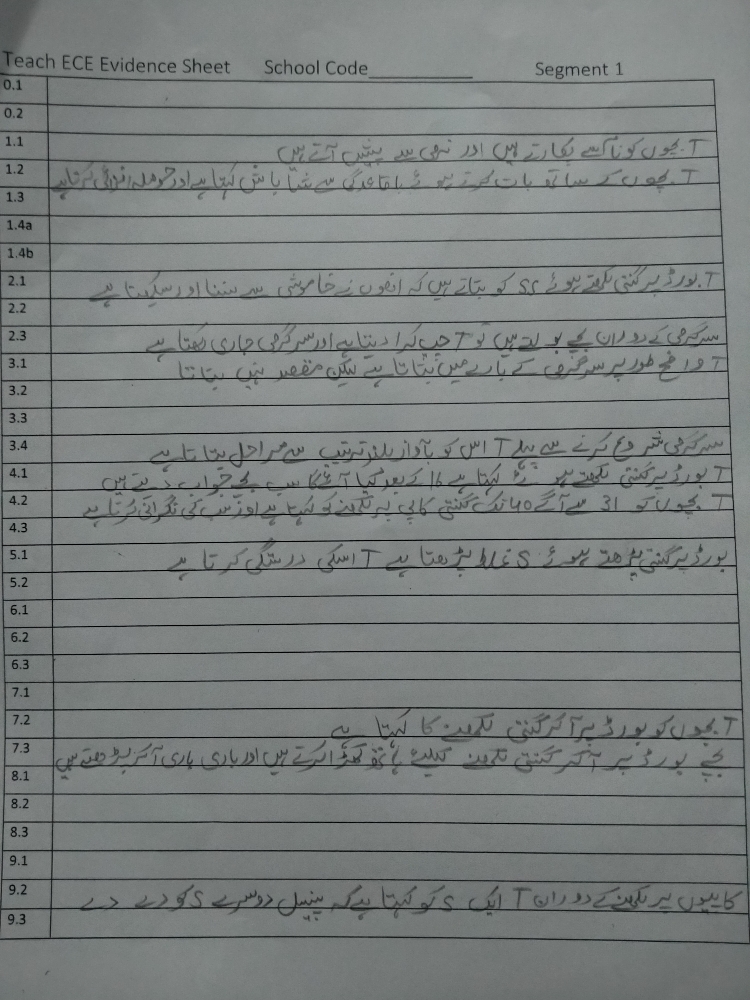 Teach ECE Evidence Sheet School Code__________ Segment 1
0.1
0.2
1.1 T۔ بچوں کو نام سے پکارتے ہیں اور نرمی سے پیش آتے ہیں
1.2 T۔ بچوں کے ساتھ بات کرتے ہوئے باقاعدگی سے شاباش کہتا ہے اور حوصلہ افزائی کرتا ہے
1.3
1.4a
1.4b
2.1 T۔ بورڈ پر گنتی لکھتے ہوئے SS کو بتاتے ہیں کہ انھوں نے خاموشی سے سننا اور سیکھنا ہے
2.2
2.3 سرگرمی کے دوران بچے بولتے ہیں تو T چپ کرا دیتا ہے اور سرگرمی جاری رکھتا ہے
3.1 T واضح طور پر سرگرمی کے بارے میں بتاتا ہے لیکن مقصد نہیں بتاتا
3.2
3.3
3.4 سرگرمی شروع کرنے سے پہلے T اس کو بآواز بلند ترتیب سے مراحل بتاتا ہے
4.1 T بورڈ پر گنتی لکھتے ہوئے کہتا ہے 16 کے بعد کیا آئے گا سب بچے جواب دیتے ہیں
4.2 T۔ بچوں کو 31 سے آگے 40 تک گنتی کاپی پر لکھنے کو کہتا ہے اور سب کی نگرانی کرتا ہے
4.3
5.1 بورڈ پر گنتی پڑھتے ہوئے S غلط پڑھتا ہے T اسکی درستگی کرتا ہے
5.2
6.1
6.2
6.3
7.1
7.2 T۔ بچوں کو بورڈ پر آ کر گنتی لکھنے کا کہتا ہے
7.3 بچے بورڈ پر آ کر گنتی لکھنے کیلئے ہاتھ کھڑا کرتے ہیں اور باری باری آ کر پڑھتے ہیں
8.1
8.2
8.3
9.1
9.2 کاپیوں پر لکھنے کے دوران T ایک S کو کہتا ہے کہ پنسل دوسرے S کو دے دے
9.3